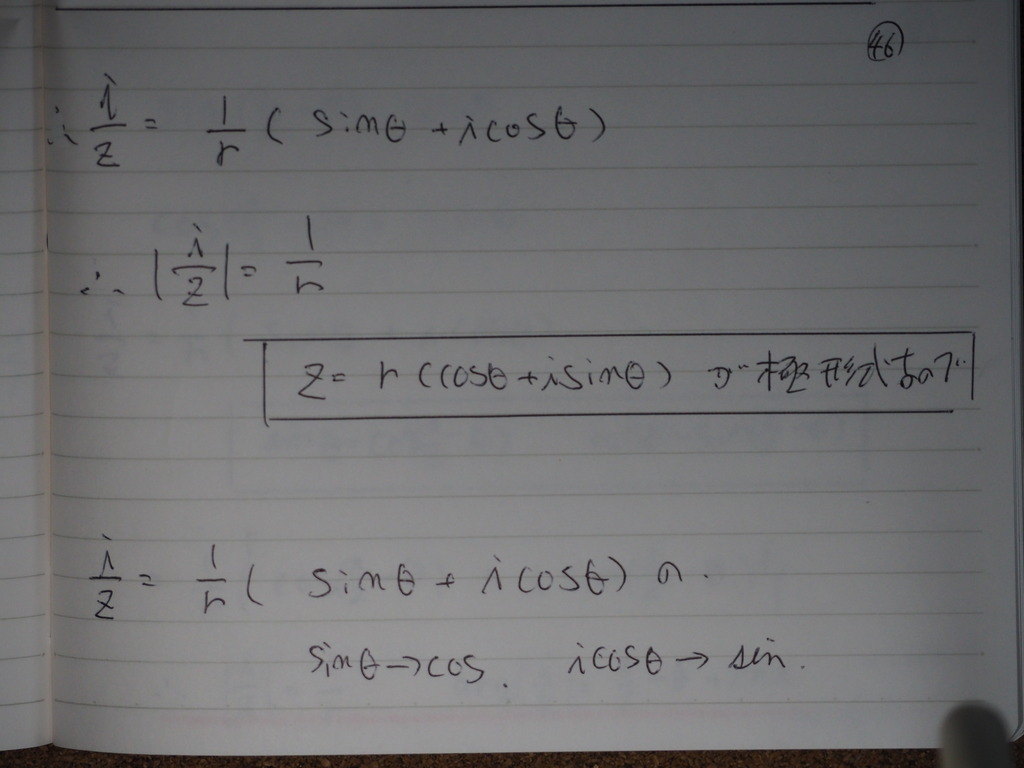 ㊻
∴ i/z = 1/r ( sinθ + i cosθ )
∴ |i/z| = 1/r
z = r (cosθ + i sinθ) が極形式なので
i/z = 1/r ( sinθ + i cosθ) の.
sinθ → cos. icosθ → sin.